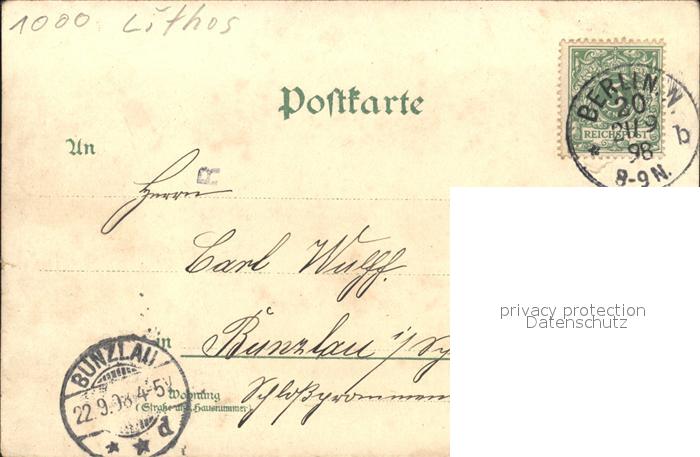 1000 Lithos
Postkarte
BERLIN. W.
20
9
98
8-9 N.
b
REICHSPOST
An
R
Herrn
Carl Wulff.
privacy protection
Datenschutz
in Bunzlau i/
BUNZLAU
22.9.98. 4-5
Wohnung
(Straße und Hausnummer)